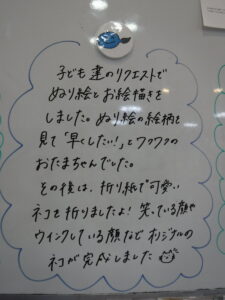 子ども達のリクエストで
ぬり絵とお絵描きを
しました。ぬり絵の絵柄を
見て「早くしたい！」とワクワクの
おたまちゃんでした。
その後は、折り紙で可愛い
ネコを折りましたよ！笑っている顔や
ウインクしている顔など オリジナルの
ネコが完成しました